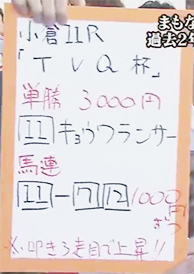 まもな
過去2年
小倉11R
「TVQ杯」
単勝 3000円
11 キョウワランサー
馬連
11-7 12 1000円
ずつ
※叩き3走目で上昇!!